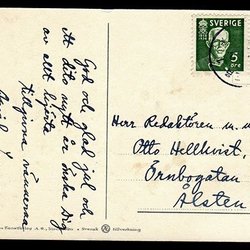 God och glad jul och
ett dito nytt år önska Dig
av allt hjärta
tillgivna vännerna
SVERIGE
5
ÖRE
Herr Redaktören m. m.
Otto Hellkvist.
Örnbogatan
Ålsten
Svensk tillverkning